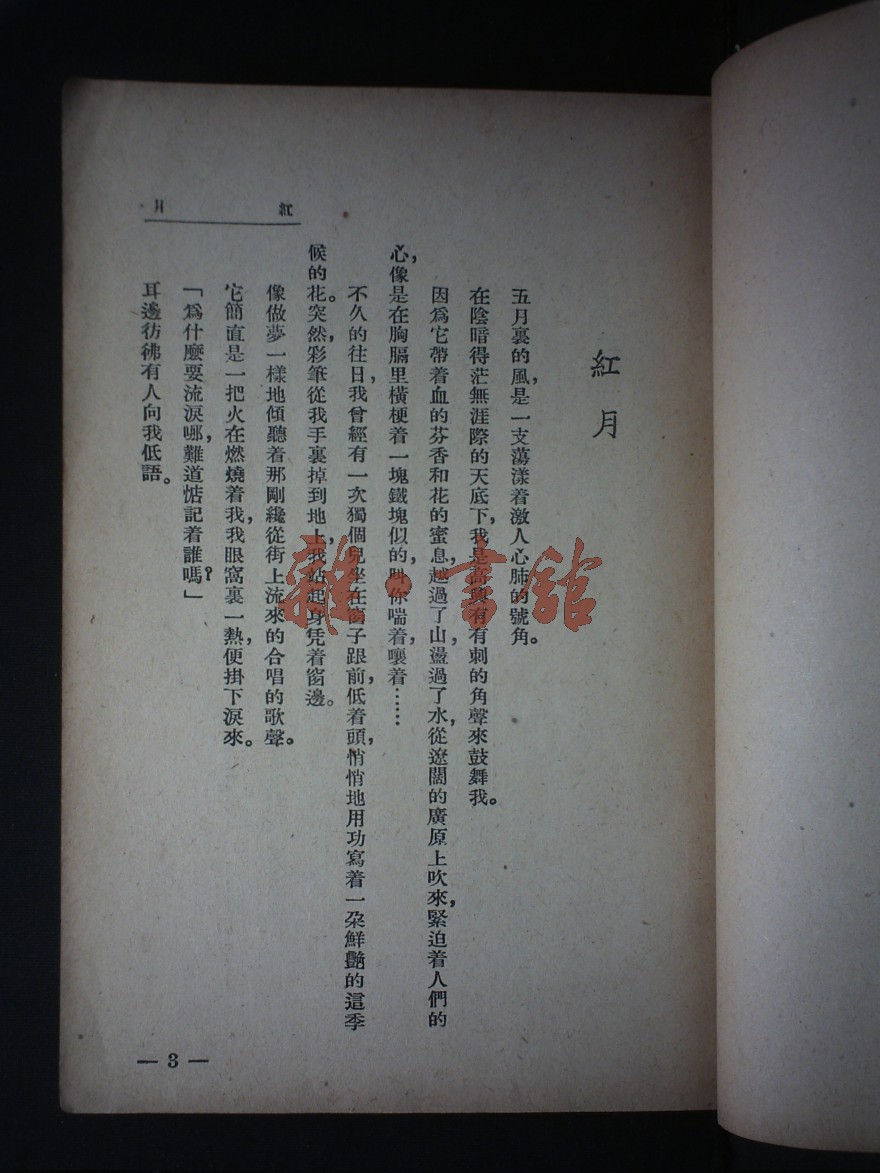 紅月
紅月
五月裏的風，是一支蕩漾着激人心肺的號角。
在陰暗得茫無涯際的天底下，我是高興有有刺的角聲來鼓舞我。
因爲它帶着血的芬香和花的蜜息，越過了山，盪過了水，從遼闊的廣原上吹來，緊迫着人們的
心，像是在胸膈里橫梗着一塊鐵塊似的，叫你喘着嚷着……
不久的往日，我曾經有一次獨個兒坐在窗子跟前，低着頭，悄悄地用功寫着一朶鮮艷的這季
候的花。突然，彩筆從我手裏掉到地上，我站起身凭着窗邊。
像做夢一樣地傾聽着那剛纔從街上流來的合唱的歌聲。
它簡直是一把火在燃燒着我，我眼窩裏一熱，便掛下淚來。
「爲什麽要流淚哪，難道惦記着誰嗎？」
耳邊彷彿有人向我低語。
— 3 —
雜·書館